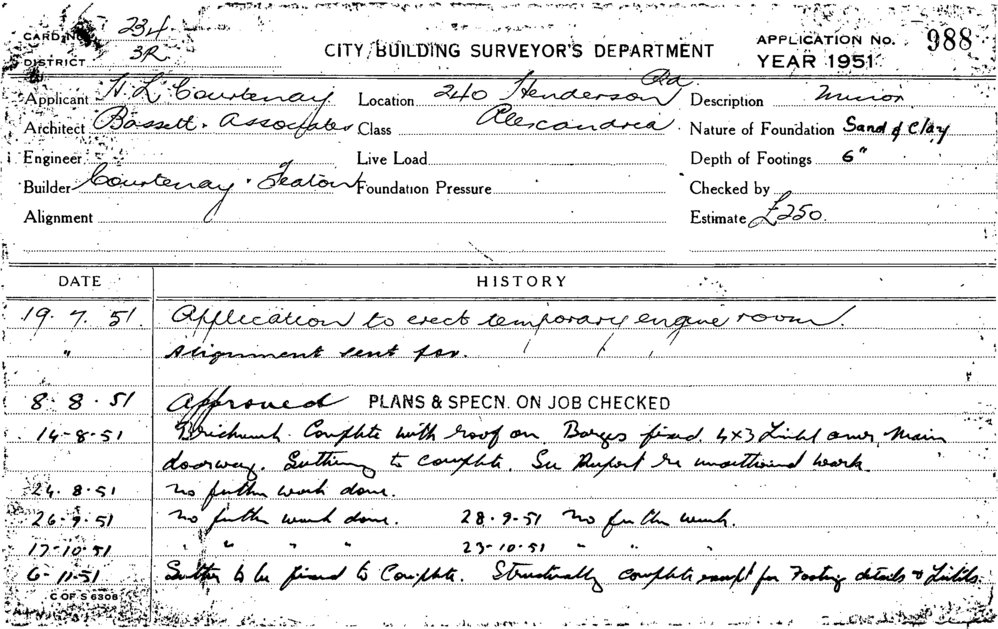 CARD No. 234
DISTRICT 3R
CITY BUILDING SURVEYOR'S DEPARTMENT
APPLICATION No. 988
YEAR 1951
Applicant H. L Courtenay Location 240 Henderson Rd Description Minor
Architect Bassett. Associates Class Alexandria Nature of Foundation Sand & Clay
Engineer Live Load Depth of Footings 6"
Builder Courtenay. Foundation Pressure Checked by
Alignment Estimate £250.
DATE HISTORY
19. 7. 51. Application to erect temporary engine room.
" Alignment sent for.
8. 8. 51 Approved PLANS & SPECN. ON JOB CHECKED
14-8-51 Brickwork Complete with roof on. Barges fixed. 4x3 Lintel over Main
doorway. to complete. See Report re work.
24. 8. 51 No further work done.
26-9-51 No further work done. 28-9-51 No further work.
17-10-51 " " " " 23-10-51 " " "
6-11-51 to be fixed to Complete. Structurally complete except for Footing details & Lintels.
C OF S 6306